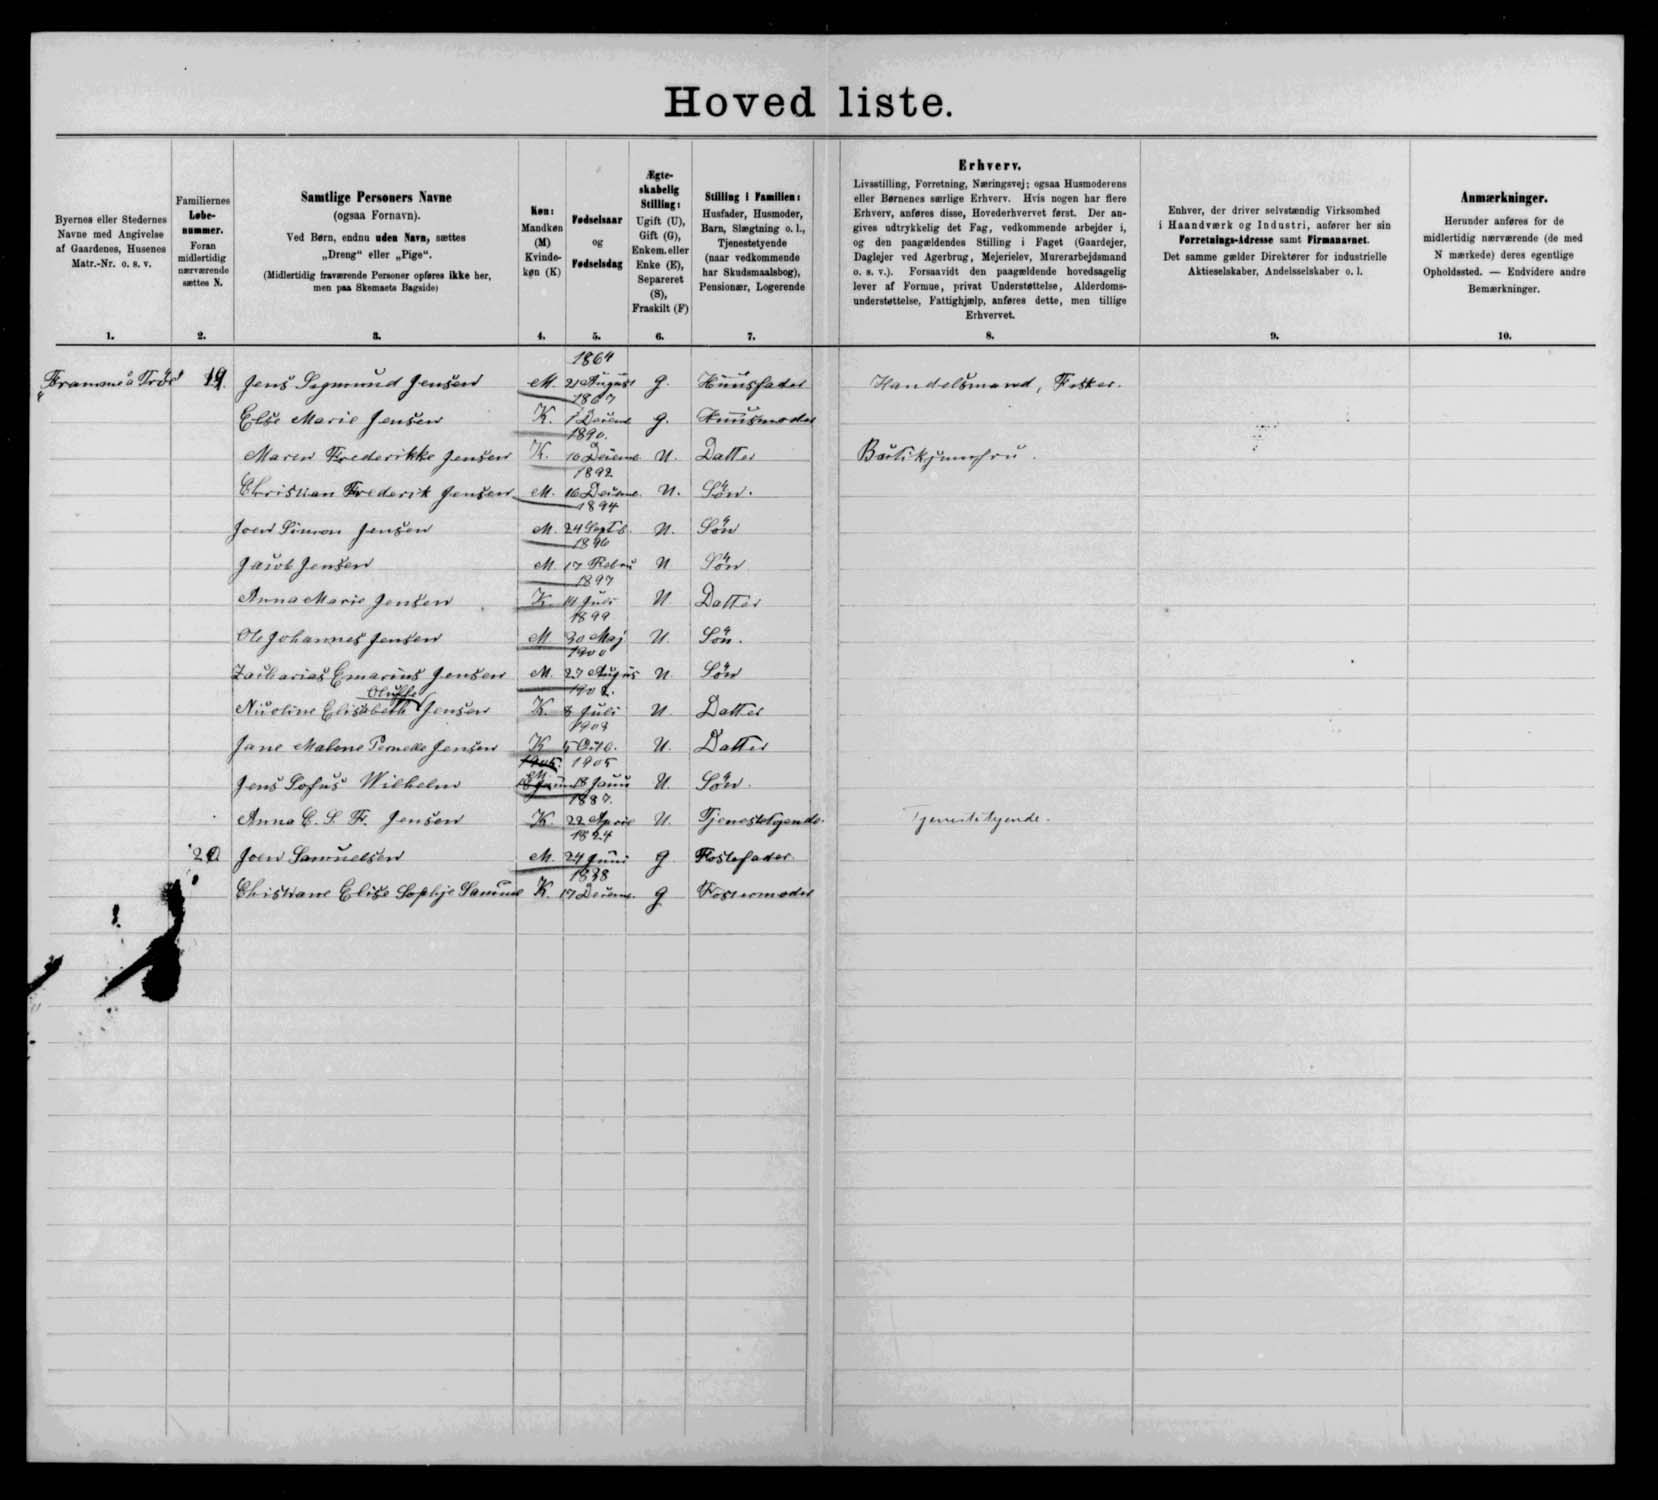 Hoved liste.
Byernes eller Stedernes
Navne med Angivelse
af Gaardenes, Husenes
Matr.-Nr. o. s. v.
1.
Familiernes
Løbe-
nummer.
Foran
midlertidig
nærværende
sættes N.
2.
Samtlige Personers Navne
(ogsaa Fornavn).
Ved Børn, endnu uden Navn, sættes
„Dreng“ eller „Pige“.
(Midlertidig fraværende Personer opføres ikke her,
men paa Skemaets Bagside)
3.
Køn:
Mandkøn
(M)
Kvinde-
køn (K)
4.
Fødselsaar
og
Fødselsdag
5.
Ægte-
skabelig
Stilling:
Ugift (U),
Gift (G),
Enkem. eller
Enke (E),
Separeret
(S),
Fraskilt (F)
6.
Stilling i Familien:
Husfader, Husmoder,
Barn, Slægtning o. l.,
Tjenestetyende
(naar vedkommende
har Skudsmaalsbog),
Pensionær, Logerende
7.
Erhverv.
Livsstilling, Forretning, Næringsvej; ogsaa Husmoderens
eller Børnenes særlige Erhverv. Hvis nogen har flere
Erhverv, anføres disse, Hovederhvervet først. Der an-
gives udtrykkelig det Fag, vedkommende arbejder i,
og den paagældendes Stilling i Faget (Gaardejer,
Daglejer ved Agerbrug, Mejerielev, Murerarbejdsmand
o. s. v.). Forsaavidt den paagældende hovedsagelig
lever af Formue, privat Understøttelse, Alderdoms-
understøttelse, Fattighjælp, anføres dette, men tillige
Erhvervet.
8.
Enhver, der driver selvstændig Virksomhed
i Haandværk og Industri, anfører her sin
Forretnings-Adresse samt Firmanavnet.
Det samme gælder Direktører for industrielle
Aktieselskaber, Andelsselskaber o. l.
9.
Anmærkninger.
Herunder anføres for de
midlertidig nærværende (de med
N mærkede) deres egentlige
Opholdssted. — Endvidere andre
Bemærkninger.
10.
19. Jens Sigmund Jensen M. 1864 21 August G. Huusfader Handelsmand, Fisker.
Else Marie Jensen K. 1867 1 Decemb G. Huusmoder
Maren Frederikke Jensen K. 1890. 10 Decemb U. Datter
Christian Frederik Jensen M. 1892 16 Decemb. U. Sön.
Joen Simon Jensen M. 1894 24 Septb. U. Sön
Jacob Jensen M. 1896 17 Febru U Sön
Anna Marie Jensen K. 1897 Juli U Datter
Ole Johannes Jensen M 1899 30 Maj U. Sön.
Zacharias Emarius Jensen M. 1900 27 Augus U. Sön
Nicoline Elisabeth Oluffe Jensen K. 8 Juli U. Datter
Jane Malene Jensen K 1903 Octb. U. Datter
Jens Sofus Wilhelm M 1905 18 Janu U. Sön.
Anna C. S. F. Jensen K. 1887. 22 April U. Tjenestetyende. Tjenestetyende.
20 Joen Samuelsen M. 24 Juni G Fostefader
Christiane Elise Sophje K. 1838 17 Decemb. G Fostermoder